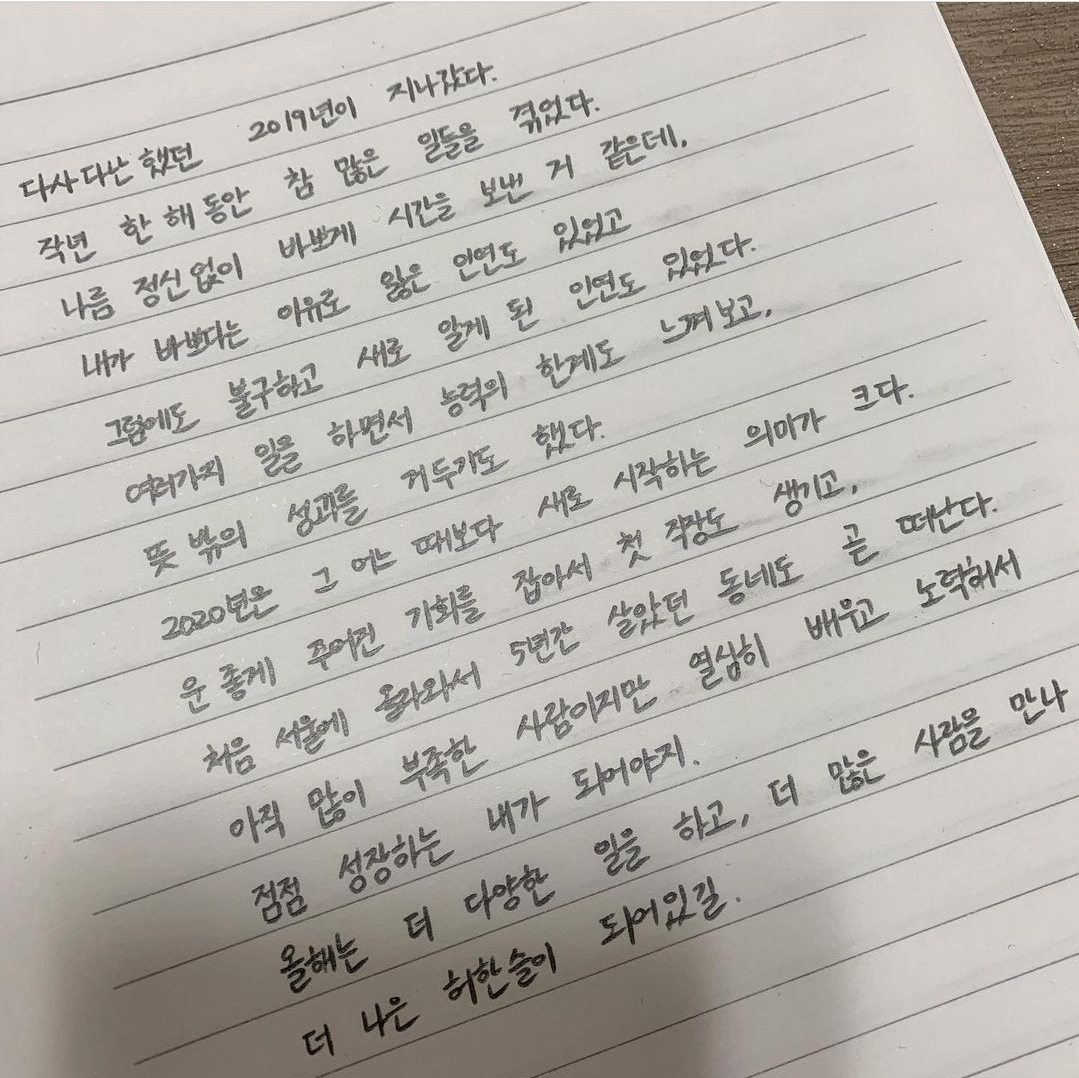 다사다난했던 2019년이 지나갔다.
작년 한 해 동안 참 많은 일들을 겪었다.
나름 정신없이 바쁘게 시간을 보낸 거 같은데,
내가 바쁘다는 이유로 잃은 인연도 있었고
그럼에도 불구하고 새로 알게 된 인연도 있었다.
여러가지 일을 하면서 능력의 한계도 느껴보고,
뜻 밖의 성과를 거두기도 했다.
2020년은 그 어느 때보다 새로 시작하는 의미가 크다.
운 좋게 주어진 기회를 잡아서 첫 직장도 생기고,
처음 서울에 올라와서 5년간 살았던 동네도 곧 떠난다.
아직 많이 부족한 사람이지만 열심히 배우고 노력해서
점점 성장하는 내가 되어야지.
올해는 더 다양한 일을 하고, 더 많은 사람을 만나
더 나은 허한솔이 되어있길.